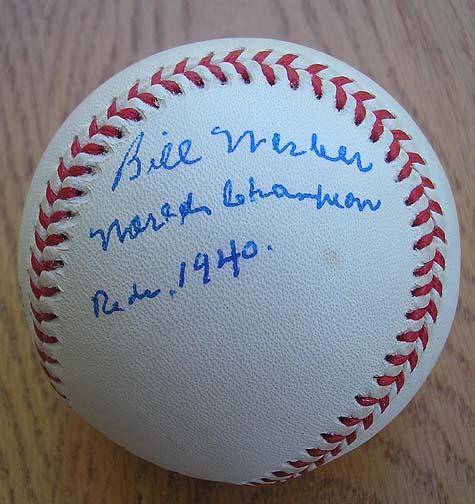 Bill Werber
World Champion
Reds. 1940.